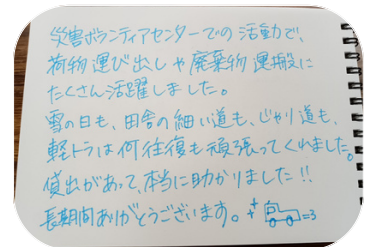 災害ボランティアセンターでの活動で、
荷物運び出しや廃棄物運搬に
たくさん活躍しました。
雪の日も、田舎の細い道も、じゃり道も、
軽トラは何往復も頑張ってくれました。
貸出があって、本当に助かりました!!
長期間ありがとうございます。